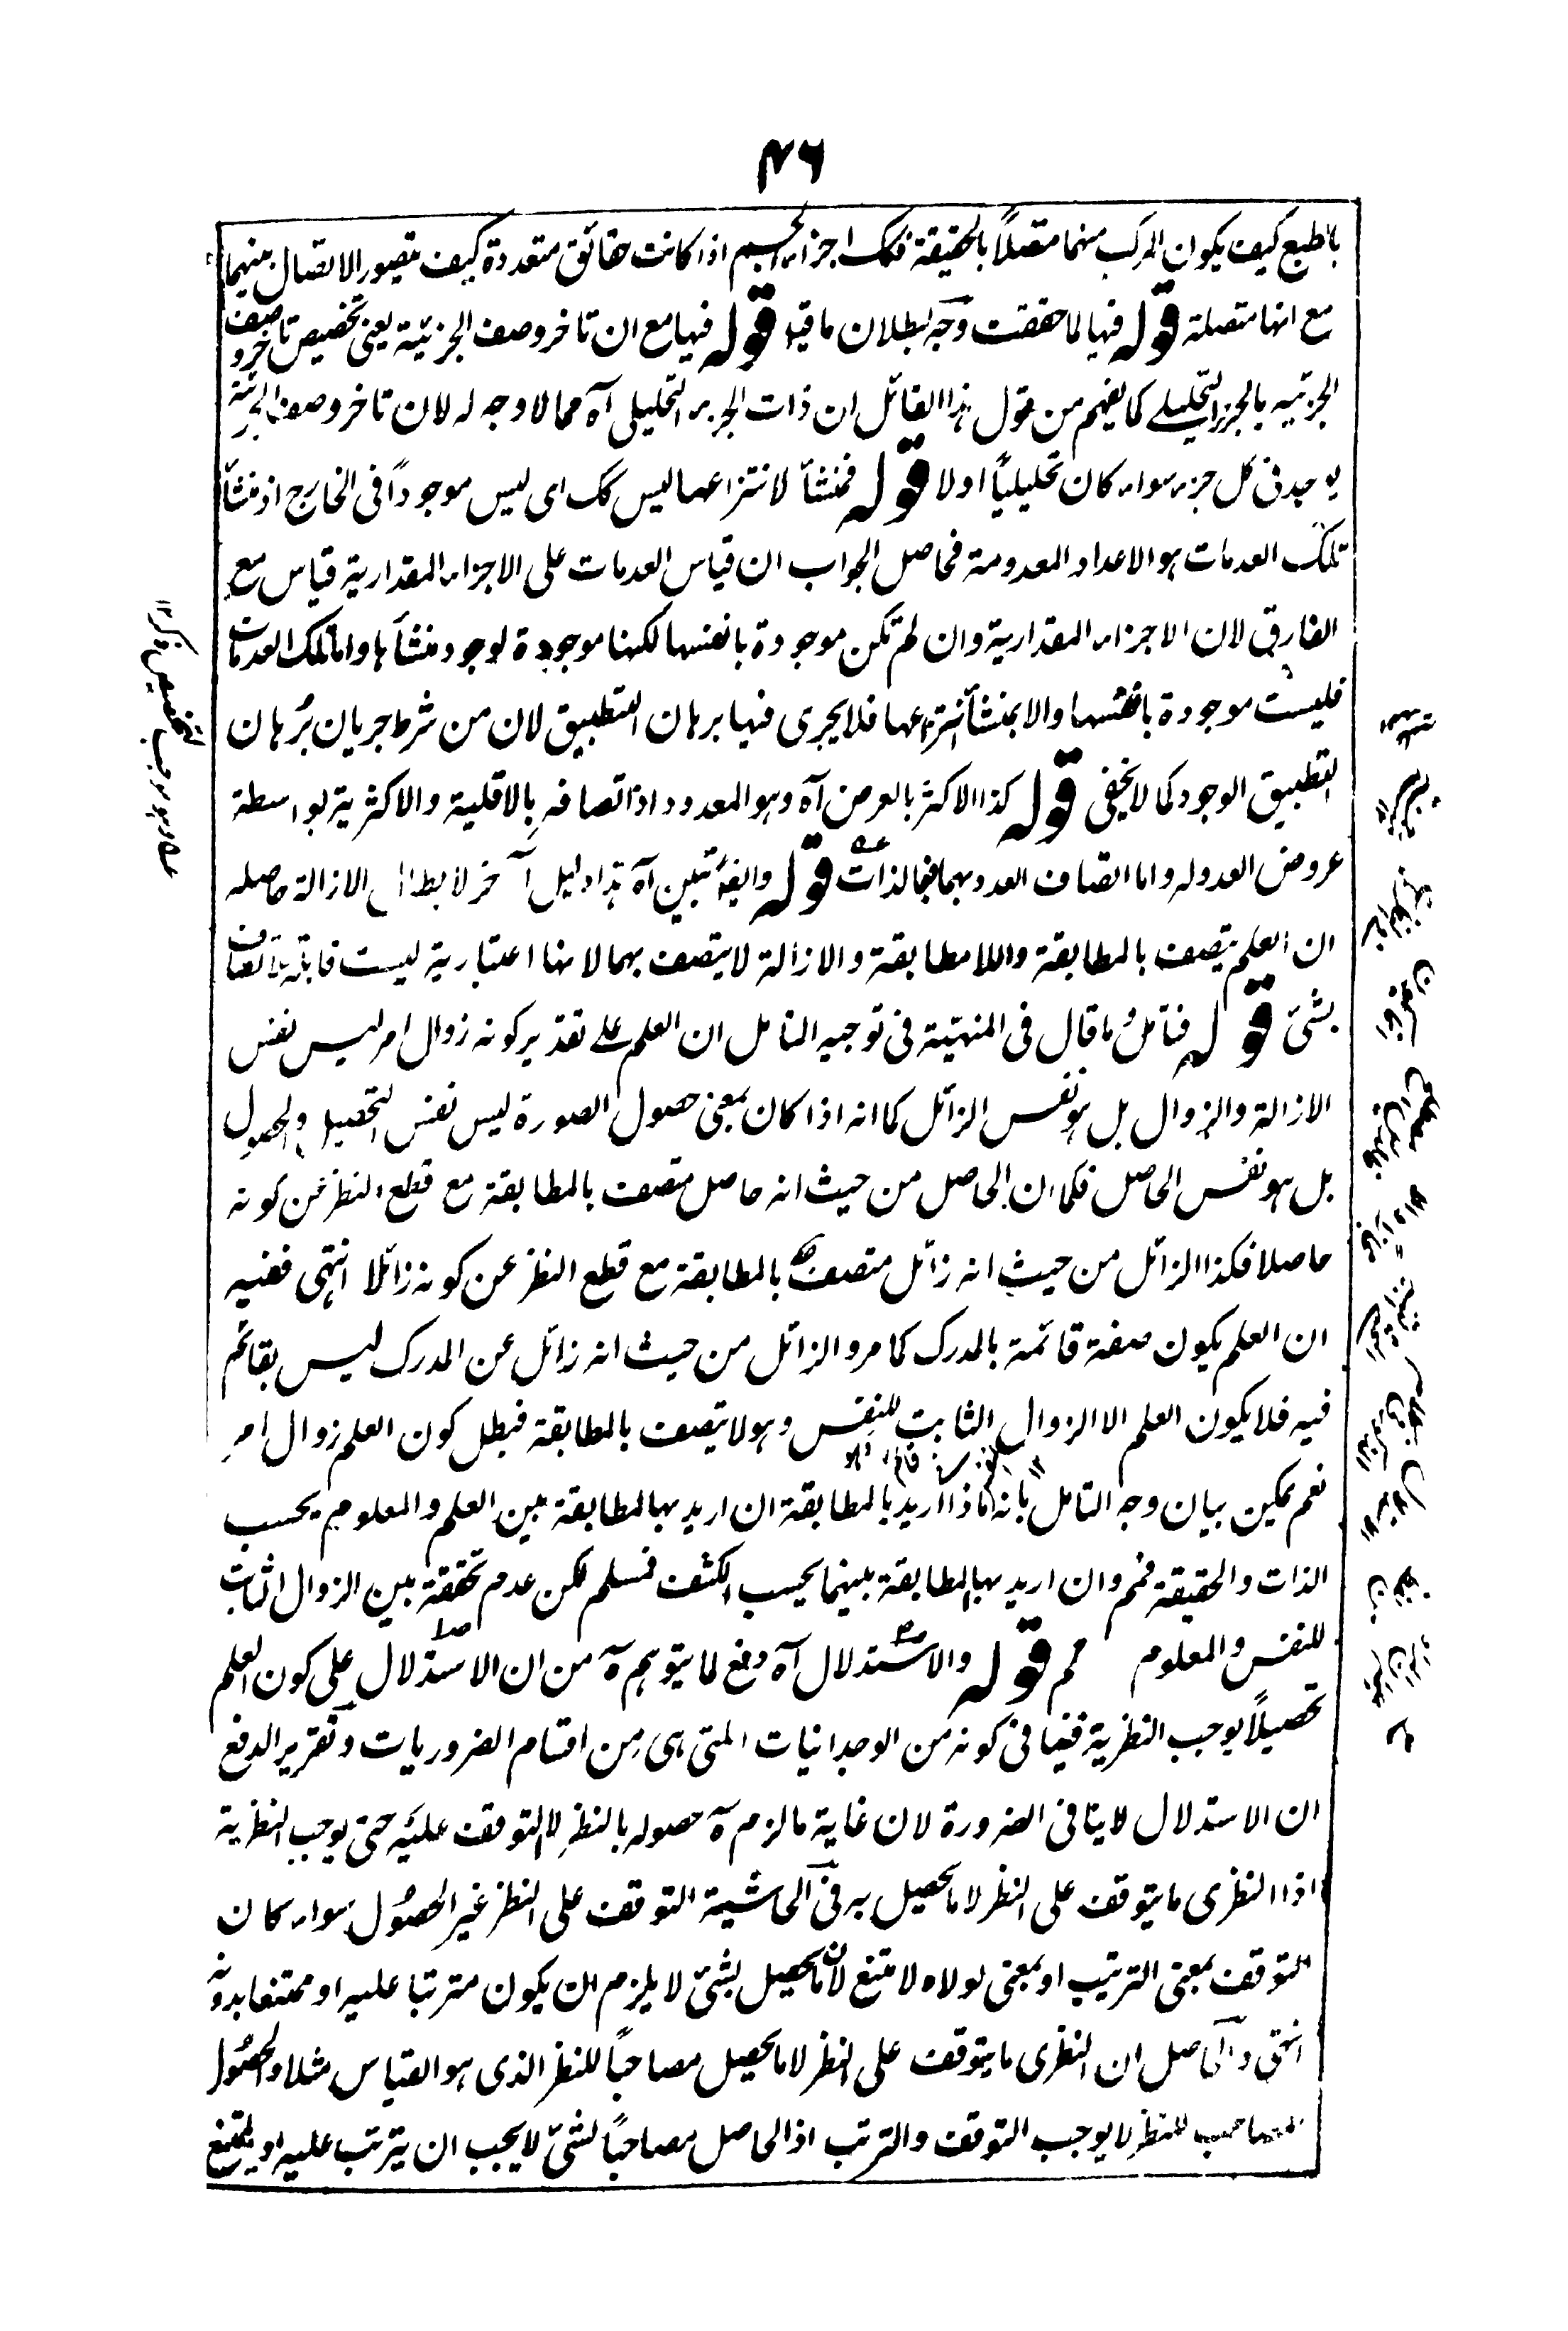 ٤٦
بالطبع كيف يكون المركب منهما متصلاً بالحقيقة فكك اجزاء الجسم اذا كانت حقائق متعددة كيف يتصور الاتصال بينهما
مع انها متصلة قوله فيها لما حققت وجه لبطلان ما فيه قوله فيها مع ان تاخر وصف الجزئية يعنى تخصيص تاخر وصف
الجزئية بالجزء التحليلے كما يفهم من قول هذا القائل ان ذات الجزء التحليلى آه مما لا وجه له لان تاخر وصف الجزئية
يوجد فى كل جزء سواء كان تحليلياً اولا قوله فمنشأ لانتزاعها ليس كك اى ليس موجوداً فى الخارج اذ منشأ
تلك العدمات هو الاعداد المعدومة فحاصل الجواب ان قياس العدمات على الاجزاء المقدارية قياس مع
الفارق لان الاجزاء المقدارية وان لم تكن موجودة بانفسها لكنها موجودة لوجود منشأها واما تلك العدمات
فليست موجودة بانفسها ولا بمنشأ انتزاعها فلا يجرى فيها برهان التطبيق لان من شرط جريان برهان
التطبيق الوجود كما لا يخفى قوله كذا الاكثر بالعرض آه وهو المعدود اذ اتصافه بالاقلية والاكثرية بواسطة
عروض العدد له واما اتصاف العدد بهما فبالذات قوله وايضاً تبين آه هذا دليل آخر لابطال الازالة حاصله
ان العلم يتصف بالمطابقة واللامطابقة والازالة لا يتصف بهما لانها اعتبارية ليست قابلة للاتصاف
بشئ قوله فتأمل ما قال فى المنهية فى توجيه التامل ان العلم على تقدير كونه زوال امر ليس نفس
الازالة والزوال بل هو نفس الزائل كما انه اذا كان بمعنى حصول الصورة ليس نفس التحصيل والحصول
بل هو نفس الحاصل فكما ان الحاصل من حيث انه حاصل متصف بالمطابقة مع قطع النظر عن كونه
حاصلا فكذا الزائل من حيث انه زائل متصف بالمطابقة مع قطع النظر عن كونه زائلا انتهى ففيه
ان العلم يكون صفة قائمة بالمدرك كما مر والزائل من حيث انه زائل عن المدرك ليس بقائم
فيه فلا يكون العلم الا الزوال الثابت للنفس وهو لا يتصف بالمطابقة فبطل كون العلم زوال امر
نعم يمكن بيان وجه التامل بانه ماذا اريد بالمطابقة ان اريد بها المطابقة بين العلم والمعلوم بحسب
الذات والحقيقة فمم وان اريد بها المطابقة بينهما بحسب الكشف فمسلم لكن عدم تحققه بين الزوال الثابت
للنفس والمعلوم مم قوله والاستدلال آه دفع لما يتوهم آه من ان الاستدلال على كون العلم
تحصيلاً يوجب النظرية فينافى كونه من الوجدانيات التى هى من اقسام الضروريات وتقرير الدفع
ان الاستدلال لا ينافى الضرورة لان غاية ما لزم آه حصوله بالنظر لا التوقف عليه حتى يوجب النظرية
اذ النظرى ما يتوقف على النظر لا ما يحصل به فى الحاشية التوقف على النظر غير الحصول سواء كان
التوقف بمعنى الترتيب او بمعنى لولاه لامتنع لان ما يحصل بشئ لا يلزم ان يكون مترتبا عليه او ممتنعا بدونه
انتهى والحاصل ان النظرى ما يتوقف على النظر لا ما يحصل مصاحباً للنظر الذى هو القياس مثلا والحصول
المصاحب للنظر لا يوجب التوقف والترتب اذ الحاصل مصاحباً لشئ لا يجب ان يترتب عليه او يمتنع